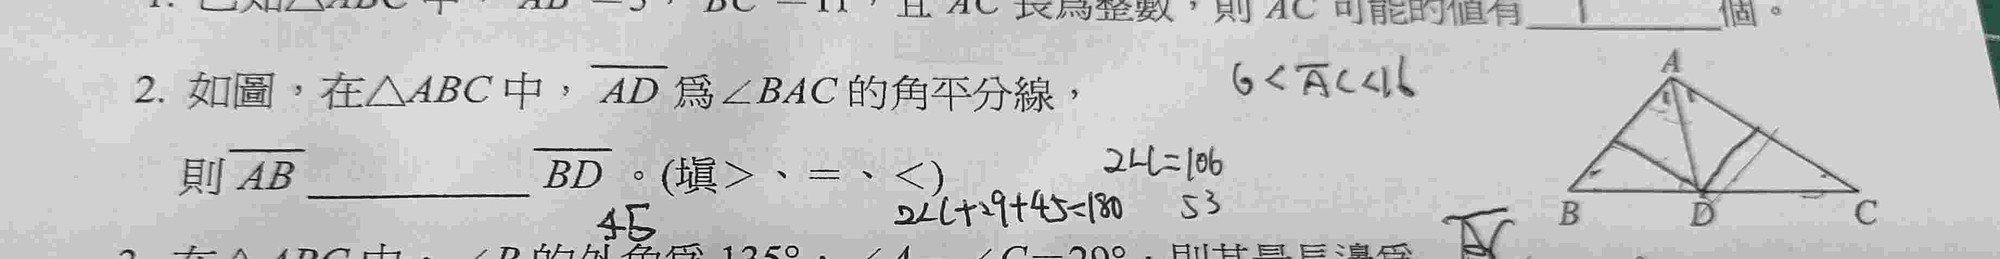 1. 已知△ABC 中， AB =5， BC =11，且 AC 長為整數，則 AC 可能的值有 個。
2. 如圖，在△ABC 中，AD 為∠BAC 的角平分線，
6<AC<16
則 AB ________ BD 。(填>、=、<)
2∠C=106
2∠C+29+45=180 53
45
A
B D C
∠B 的外角為 135°，∠A－∠C=29°，則其最長邊為